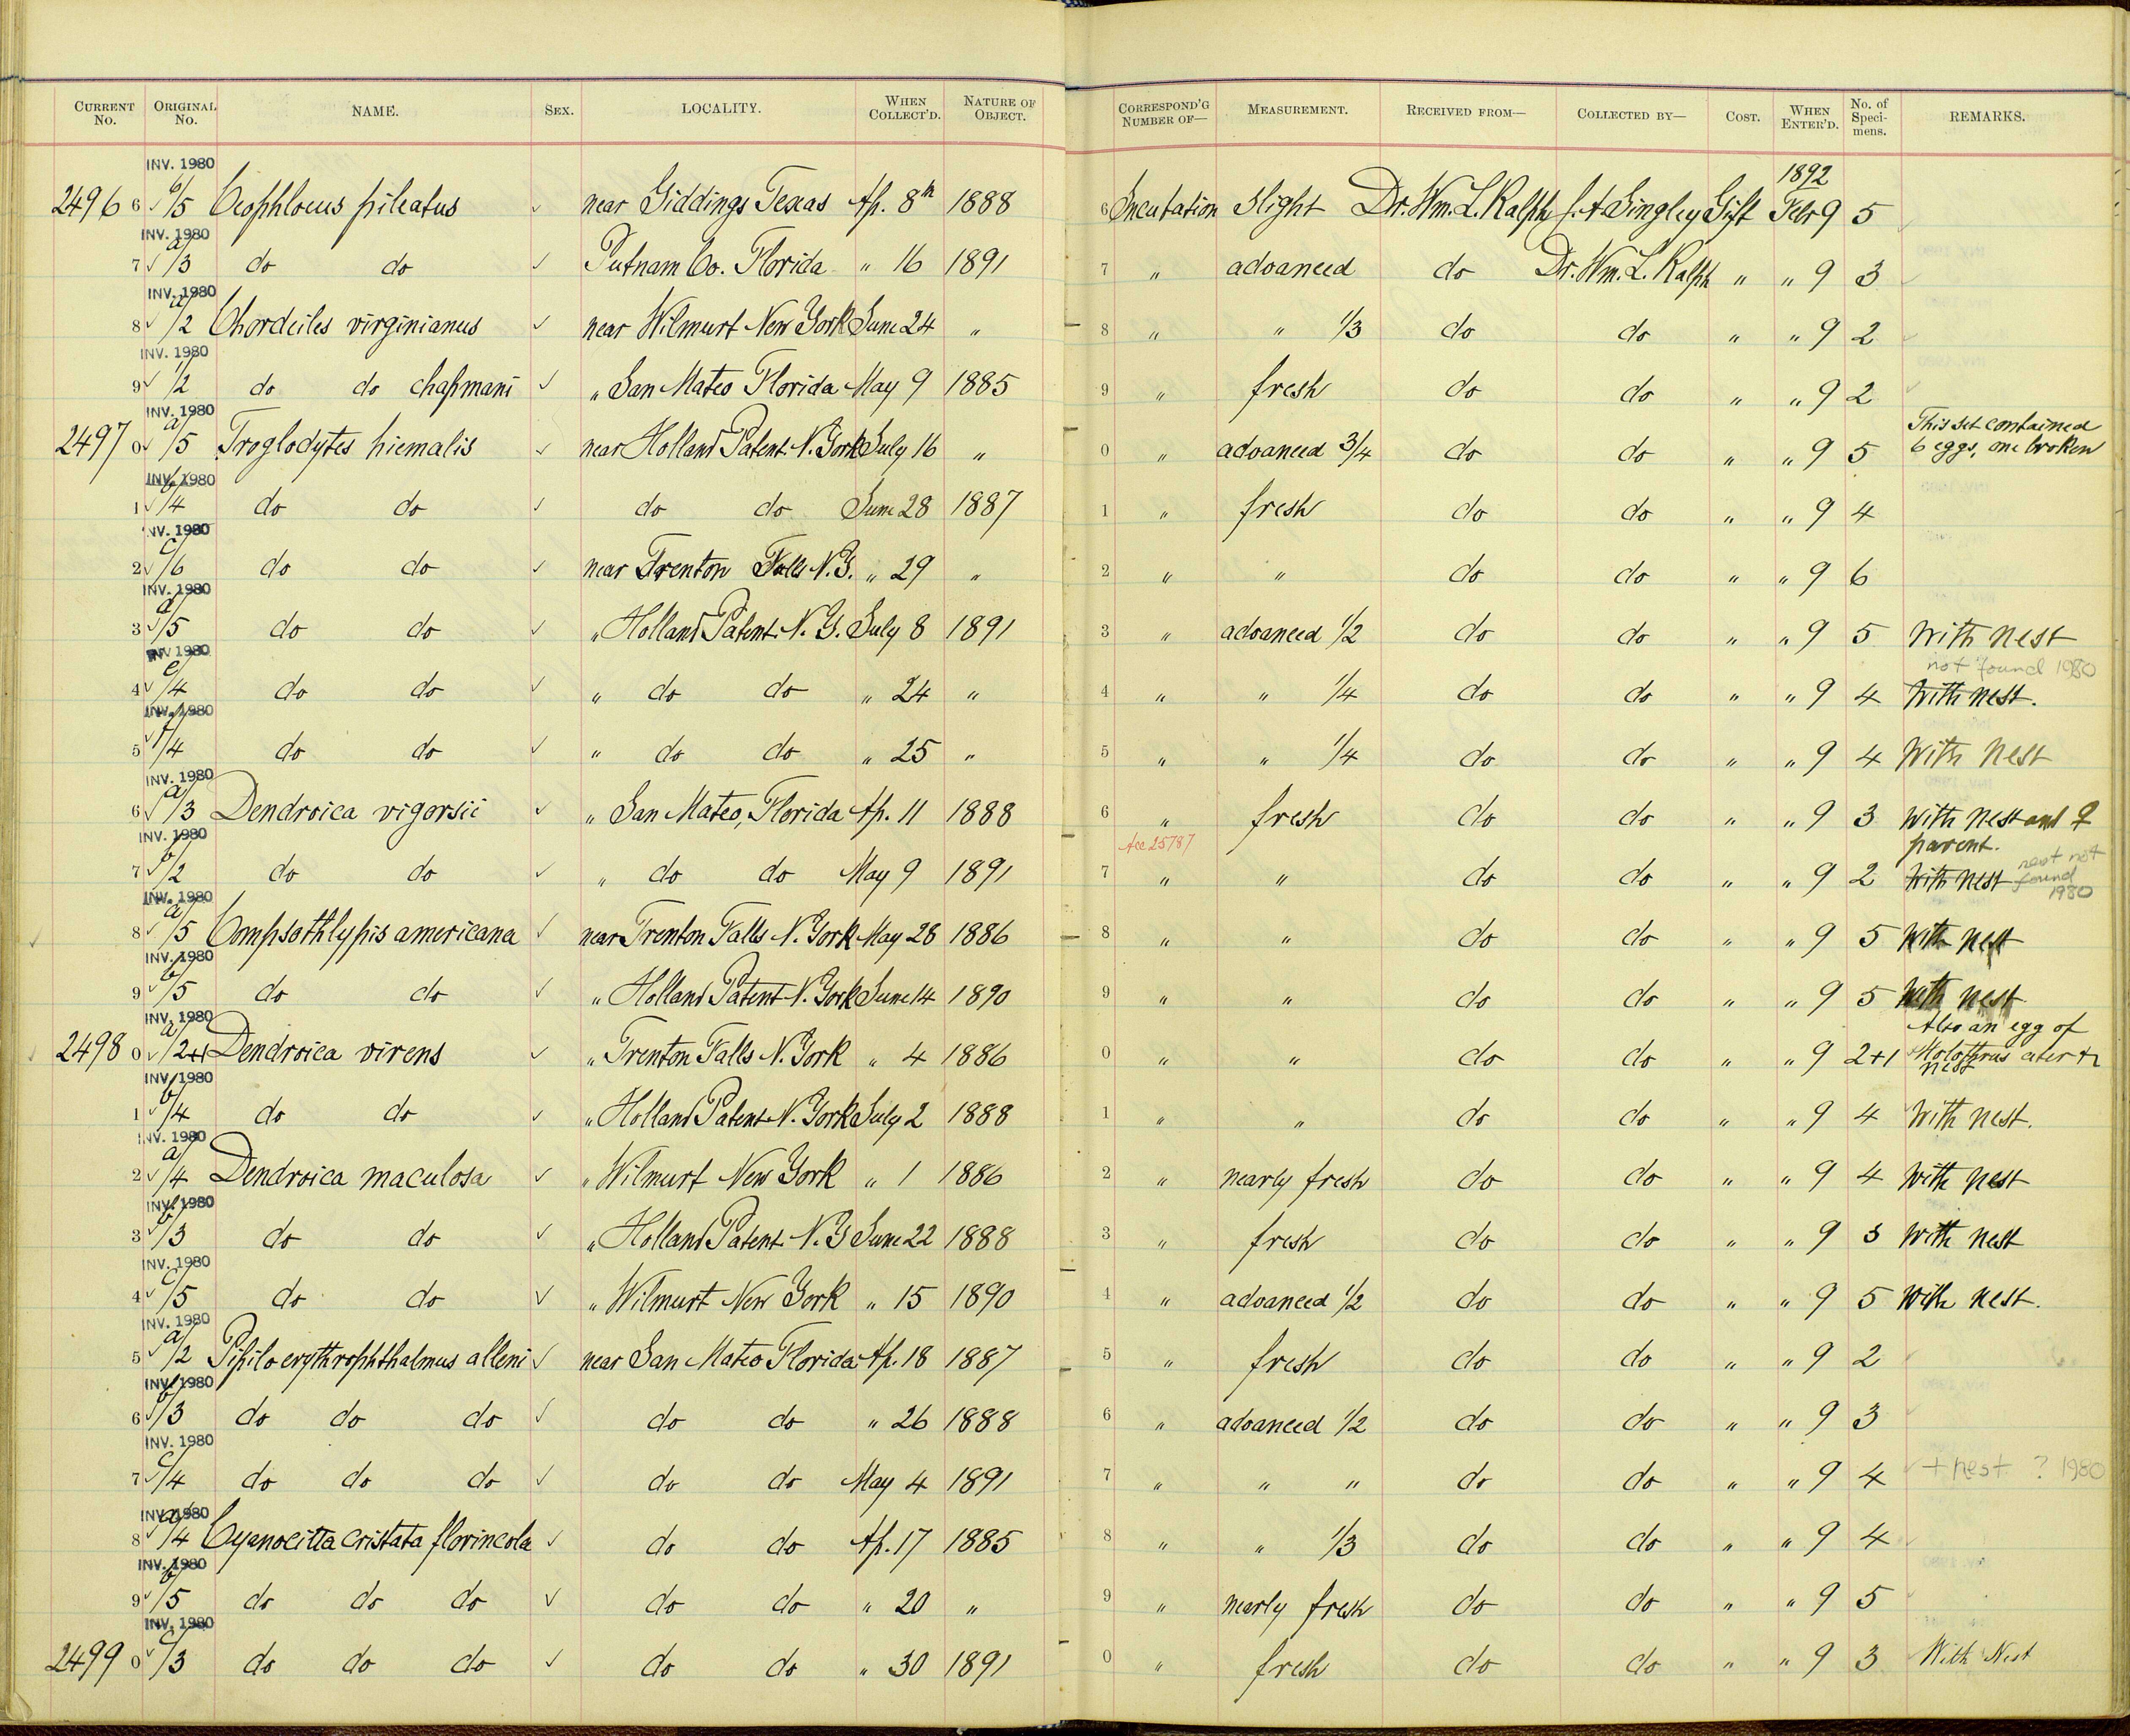 CURRENT No. ORIGINAL No. NAME. SEX. LOCALITY. WHEN COLLECT'D. NATURE OF OBJECT. CORRESPOND'G NUMBER OF— MEASUREMENT. RECEIVED FROM— COLLECTED BY— COST. WHEN ENTER'D. No. of Speci-mens. REMARKS.
INV. 1980
1892
2496 6 ✓ b/5 Ceophloeus pileatus ✓ near Giddings Texas Ap. 8th 1888 6 Incubation slight Dr. Wm. L. Ralph J. A. Singley Gift Feb 9 5
INV. 1980
7 ✓ a/3 do do ✓ Putnam Co. Florida " 16 1891 7 " advanced do Dr. Wm. L. Ralph " " 9 3
INV. 1980
8 ✓ a/2 Chordeiles virginianus ✓ near Wilmurt New York June 24 " 8 " " 1/3 do do " " 9 2
INV. 1980
9 ✓ 1/2 do do chapmani ✓ " San Mateo Florida May 9 1885 9 " fresh do do " " 9 2
INV. 1980
This set contained
2497 0 ✓ a/5 Troglodytes hiemalis ✓ near Holland Patent N. York July 16 " 0 " advanced 3/4 do do " " 9 5 6 eggs, one broken
INV. 1980
1 ✓ b/4 do do ✓ do do June 28 1887 1 " fresh do do " " 9 4
INV. 1980
2 ✓ c/6 do do ✓ near Trenton Falls N.Y. " 29 " 2 " " do do " " 9 6
INV. 1980
3 ✓ d/5 do do ✓ " Holland Patent N. Y. July 8 1891 3 " advanced 1/2 do do " " 9 5 With nest
INV 1980
not found 1980
4 ✓ e/4 do do ✓ " do do " 24 " 4 " " 1/4 do do " " 9 4 With nest.
INV. 1980
5 ✓ f/4 do do ✓ " do do " 25 " 5 " " 1/4 do do " " 9 4 With nest
INV. 1980
6 ✓ a/3 Dendroica vigorsii ✓ " San Mateo, Florida Ap. 11 1888 6 " fresh do do " " 9 3 With nest and ♀
INV. 1980
Acc 25787 parent.
7 ✓ b/2 do do ✓ " do do May 9 1891 7 " " do do " " 9 2 With nest nest not found 1980
INV. 1980
8 ✓ a/5 Compsothlypis americana ✓ near Trenton Falls N. York May 28 1886 8 " " do do " " 9 5 With nest
INV. 1980
9 ✓ b/5 do do ✓ " Holland Patent N. York June 14 1890 9 " " do do " " 9 5 With nest
INV. 1980
Also an egg of
2498 0 ✓ a/2+1 Dendroica virens ✓ " Trenton Falls N. York " 4 1886 0 " " do do " " 9 2+1 Molothrus ater +
nest
INV. 1980
1 ✓ b/4 do do ✓ " Holland Patent N. York July 2 1888 1 " " do do " " 9 4 With nest.
INV. 1980
2 ✓ a/4 Dendroica maculosa ✓ " Wilmurt New York " 1 1886 2 " nearly fresh do do " " 9 4 With nest
INV. 1980
3 ✓ b/3 do do ✓ " Holland Patent N. Y June 22 1888 3 " fresh do do " " 9 3 With nest
INV. 1980
4 ✓ c/5 do do ✓ " Wilmurt New York " 15 1890 4 " advanced 1/2 do do " " 9 5 With nest.
INV. 1980
5 ✓ a/2 Pipilo erythrophthalmus alleni ✓ near San Mateo Florida Ap. 18 1887 5 " fresh do do " " 9 2
INV. 1980
6 ✓ b/3 do do do ✓ do do " 26 1888 6 " advanced 1/2 do do " " 9 3
INV. 1980
7 ✓ c/4 do do do ✓ do do May 4 1891 7 " " " do do " " 9 4 + nest ? 1980
INV. 1980
8 ✓ a/4 Cyanocitta cristata florincola ✓ do do Ap. 17 1885 8 " " 1/3 do do " " 9 4
INV. 1980
9 ✓ b/5 do do do ✓ do do " 20 " 9 " nearly fresh do do " " 9 5
INV. 1980
2499 0 ✓ c/3 do do do ✓ do do " 30 1891 0 " fresh do do " " 9 3 With Nest